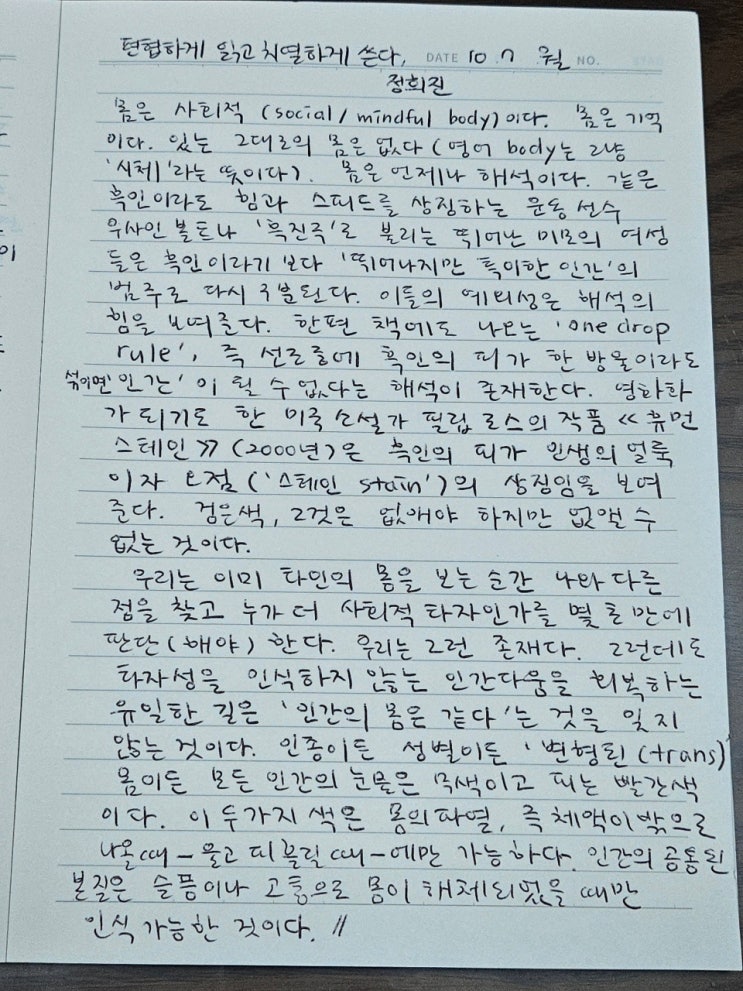 편협하게 읽고 치열하게 쓴다, DATE 10 7 월 NO.
정희진
몸은 사회적 (social / mindful body)이다. 몸은 기억
이다. 있는 그대로의 몸은 없다 (영어 body는 그냥
'시체'라는 뜻이다). 몸은 언제나 해석이다. 같은
흑인이라도 힘과 스피드를 상징하는 운동 선수
우사인 볼트나 '흑진주'로 불리는 뛰어난 미모의 여성
들은 흑인이라기 보다 '뛰어나지만 특이한 인간'의
범주로 다시 구분된다. 이들의 예외성은 해석의
힘을 보여준다. 한편 책에도 나오는 'one drop
rule', 즉 선조 중에 흑인의 피가 한 방울이라도
섞이면 '인간'이 될 수 없다는 해석이 존재한다. 영화화
가 되기도 한 미국 소설가 필립 로스의 작품 ≪휴먼
스테인≫ (2000년)은 흑인의 피가 인생의 얼룩
이자 오점('스테인 stain')의 상징임을 보여
준다. 검은색, 그것은 없애야 하지만 없앨 수
없는 것이다.
우리는 이미 타인의 몸을 보는 순간 나와 다른
점을 찾고 누가 더 사회적 타자인가를 몇 초 만에
판단(해야) 한다. 우리는 그런 존재다. 그런데도
타자성을 인식하지 않는 인간다움을 회복하는
유일한 길은 '인간의 몸은 같다'는 것을 잊지
않는 것이다. 인종이든 성별이든 '변형된 (trans)'
몸이든 모든 인간의 눈물은 무색이고 피는 빨간색
이다. 이 두가지 색은 몸의 파열, 즉 체액이 밖으로
나올 때 - 울고 피 흘릴 때 - 에만 가능하다. 인간의 공통된
본질은 슬픔이나 고통으로 몸이 해체되었을 때만
인식 가능한 것이다. //